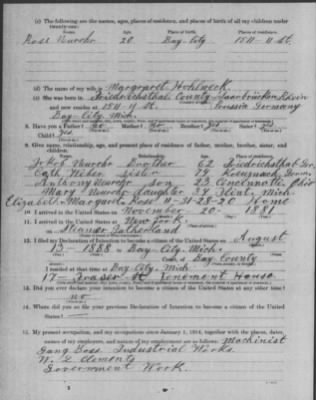 (c) The following are the names, ages, places of residence, and places of birth of all my children under twenty-one:
Name. Age. Place of birth. Place of residence.
Rose 20 Bay City 1511-11 St.
(d) The name of my wife is Margaret
(e) She was born in Friedrichsthal County Saarbrücken Rhein
and now resides at 1511-11 St. Prussia Germany
Bay City Mich.
8. Have you a Father? Mother?
Yes
9. Give name, relationship, age, and present place of residence of father, mother, brother, sister, and children.
Brother 62 Friedrichsthal Ger.
Cath. Weber Sister 74 Germ.
Anthony son 23 Cincinnati, Ohio
Mary daughter 34 Flint, Mich
Elizabeth Margaret Rose 31-28-20 Home
10. I arrived in the United States on November 20 1881
11. I arrived in the United States at New York
on Steamer Fatherland
12. I filed my Declaration of Intention to become a citizen of the United States on August
13 - 1888 in Bay City Mich.
Court of Bay County
I resided at that time at Bay City, Mich
17 - Frazer St Tenement House
13. Did you ever declare your intention to become a citizen of the United States at any other time?
no
14. Where did you so file your previous Declaration of Intention to become a citizen of the United States?
15. My present occupation, and my occupations since January 1, 1914, together with the places, dates, names of my employers, and nature of my employment are as follows: Machinist
Gang Boss Industrial Works.
W. L. Clements
Government Work.